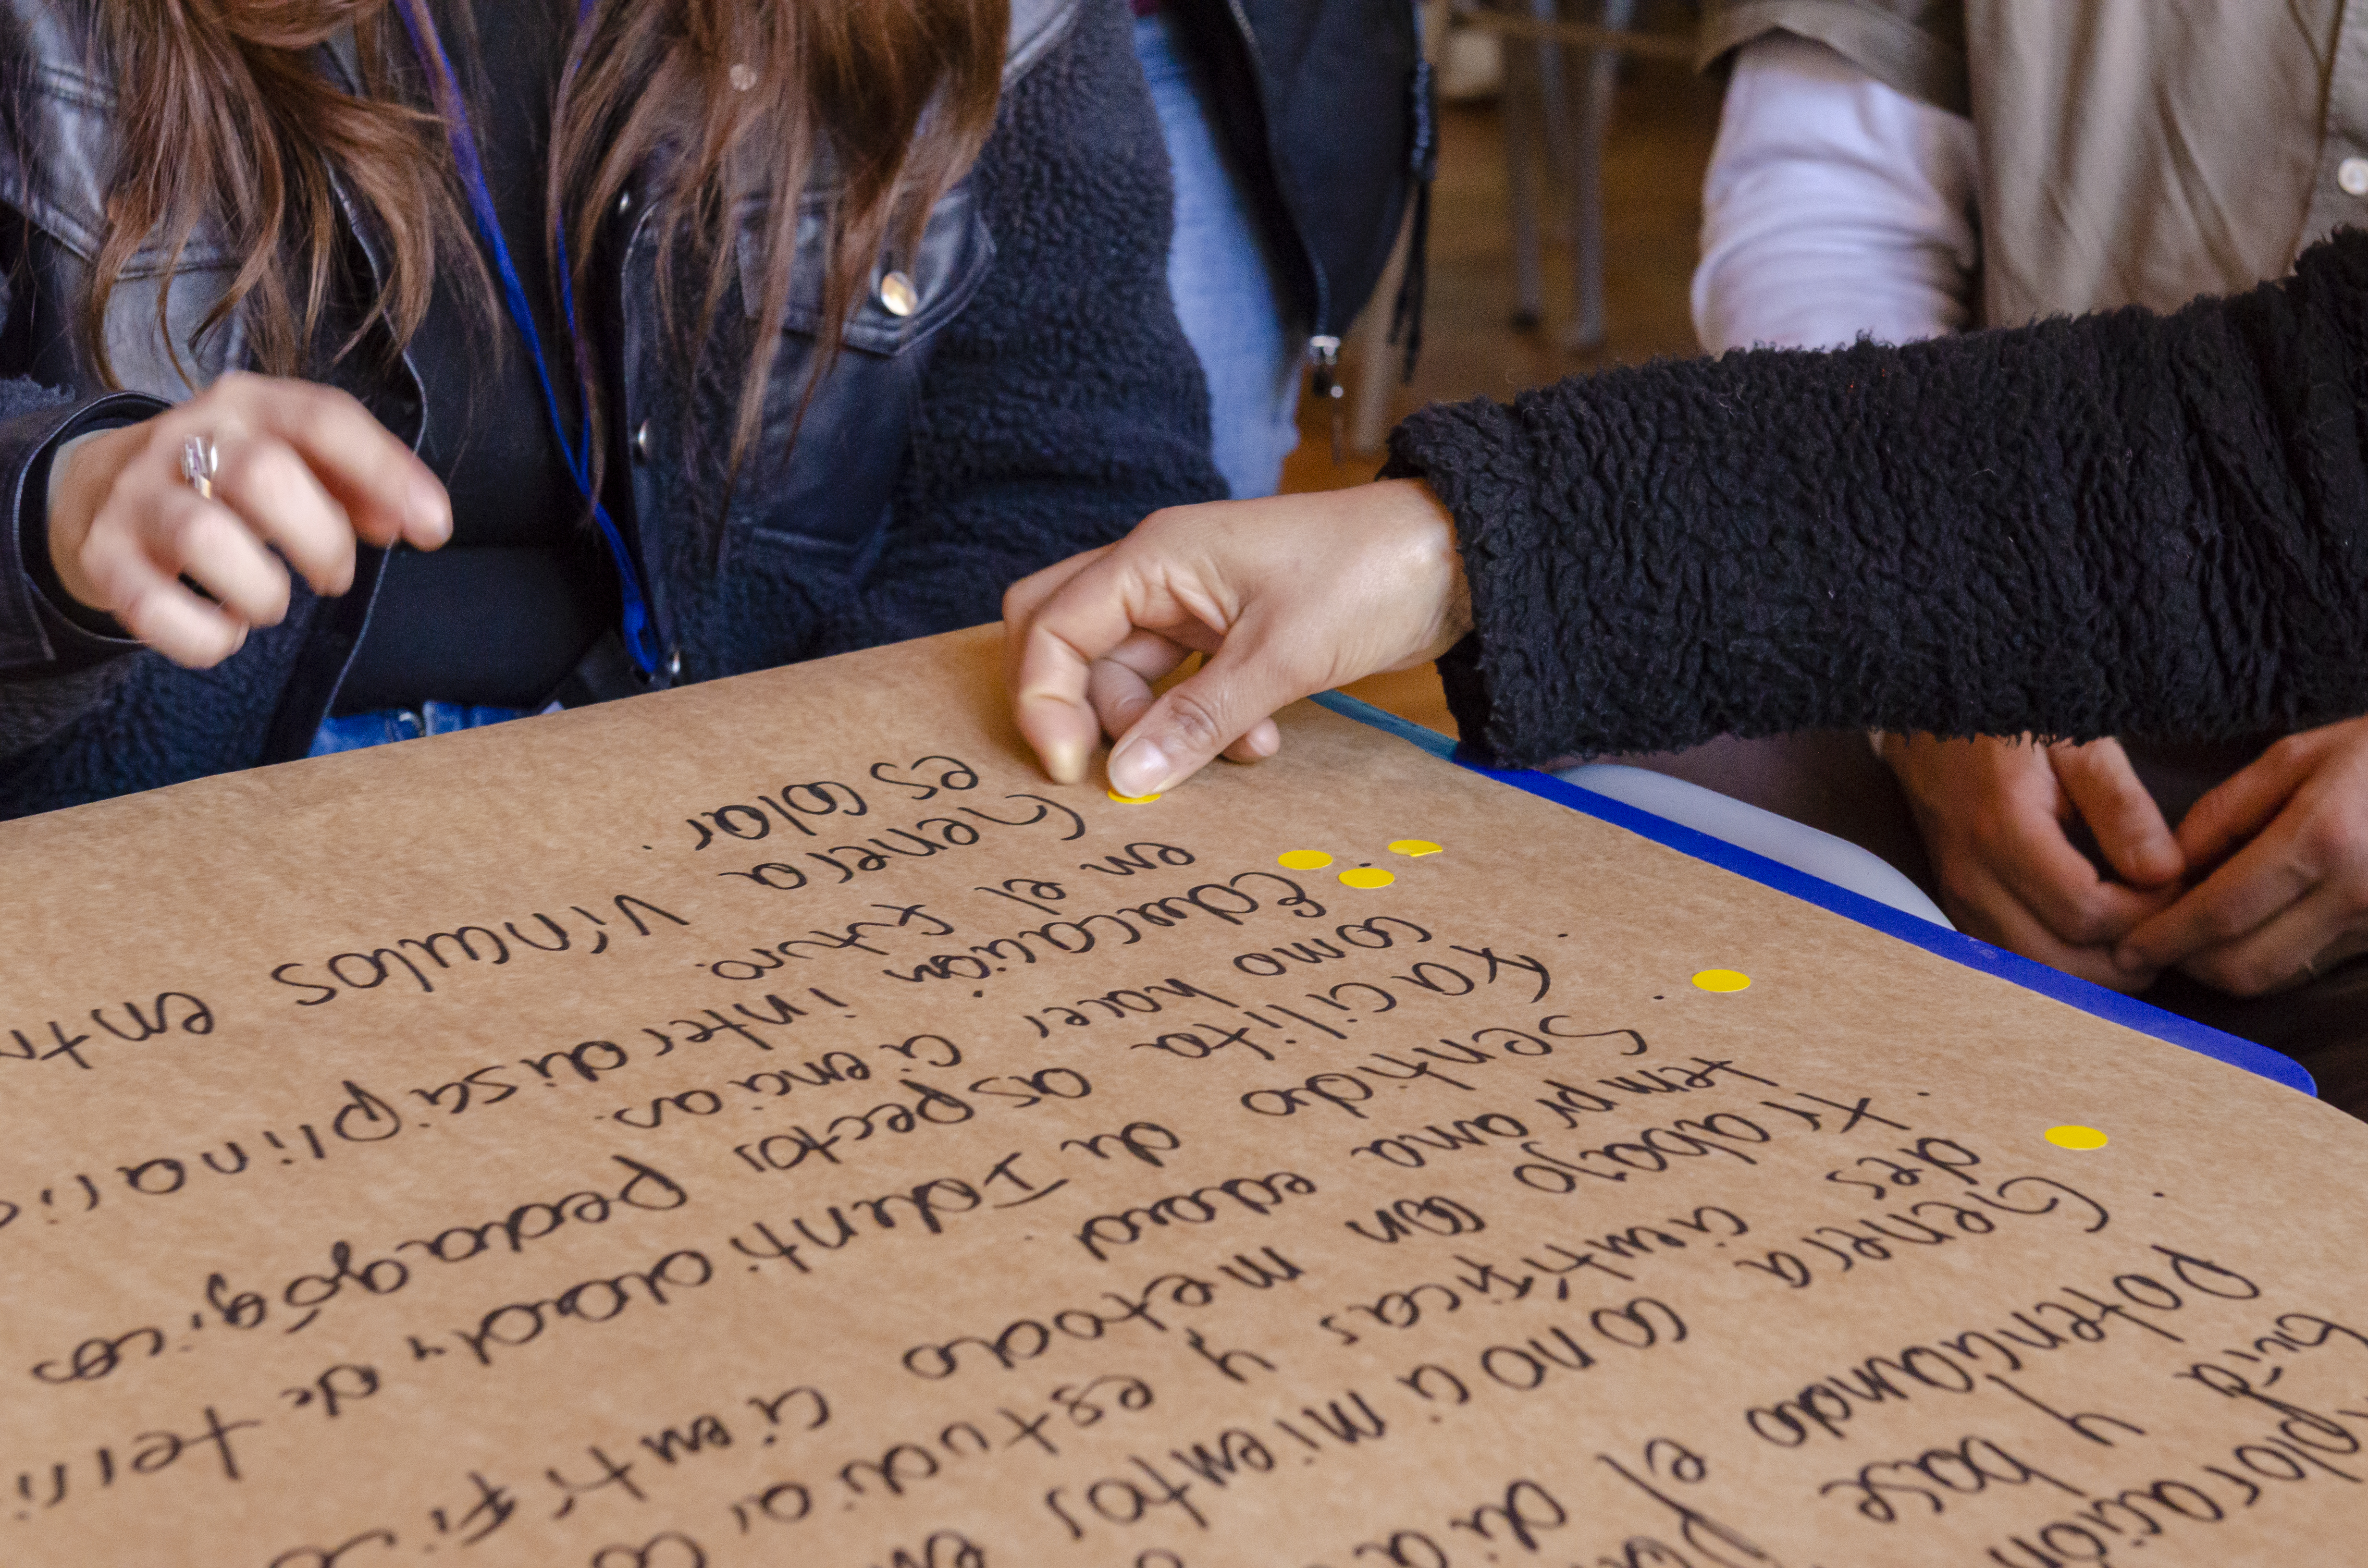 ploración
guía y base Para
Potenciando el
Genera conocimientos en
des científicas y
trabajo con metodo científico
temprana edad.
Sentido de Identidad y de
Facilita aspectos Pedagógicos
como hacer ciencias.
Educación interdisciplinaria
em el futuro.
Genera vínculos
es colar.